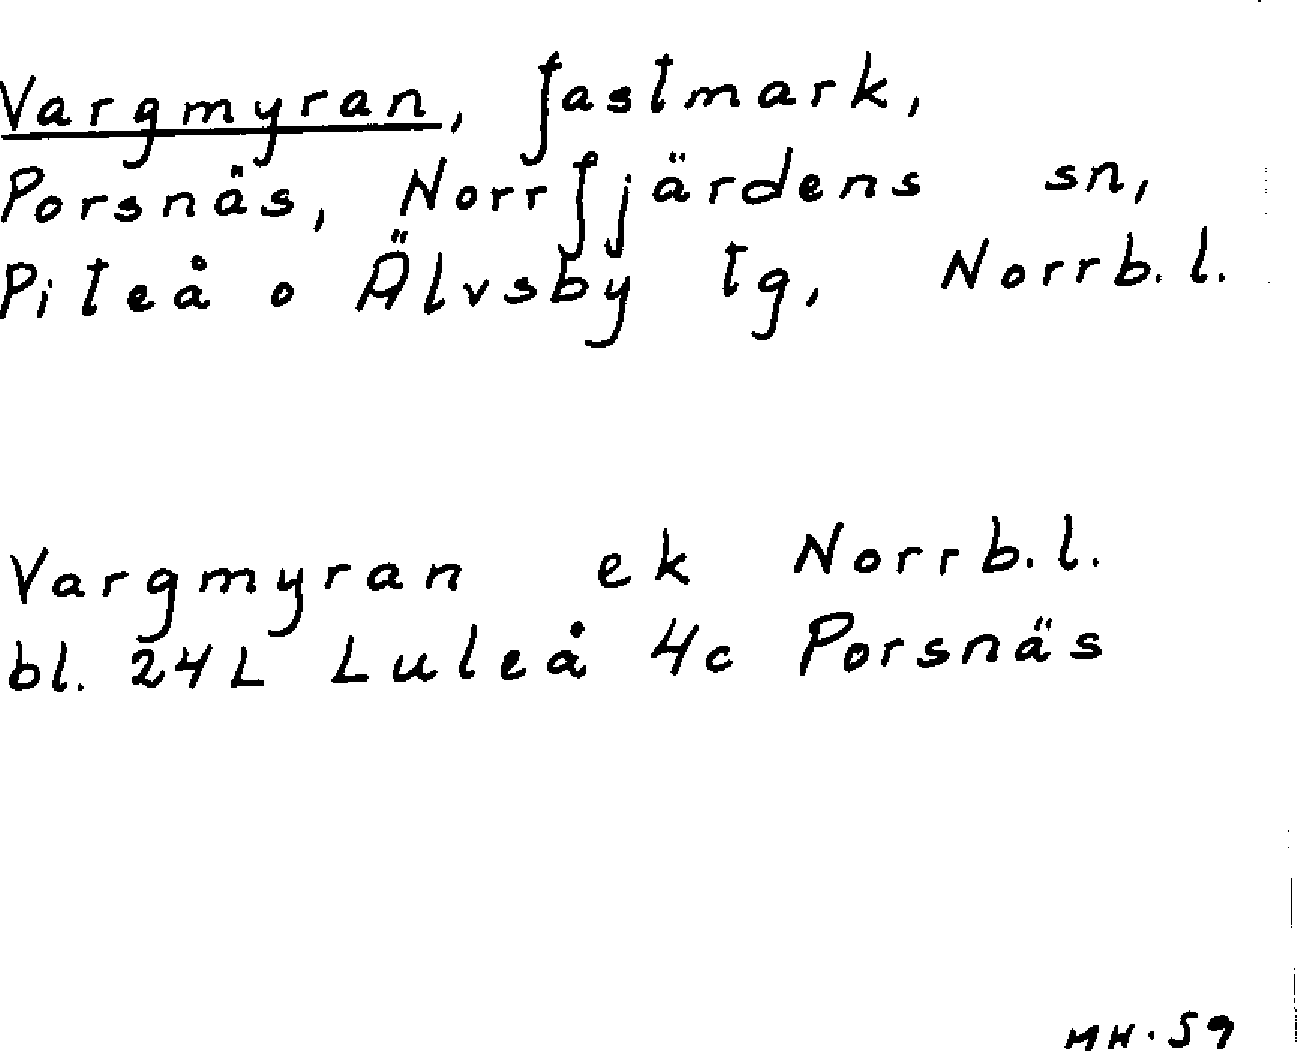 Vargmyran, fastmark,
Porsnäs, Norrfjärdens sn,
Piteå o Älvsby tg, Norrb.l.
Vargmyran ek Norrb.l.
bl. 24L Luleå 4c Porsnäs
MH.59